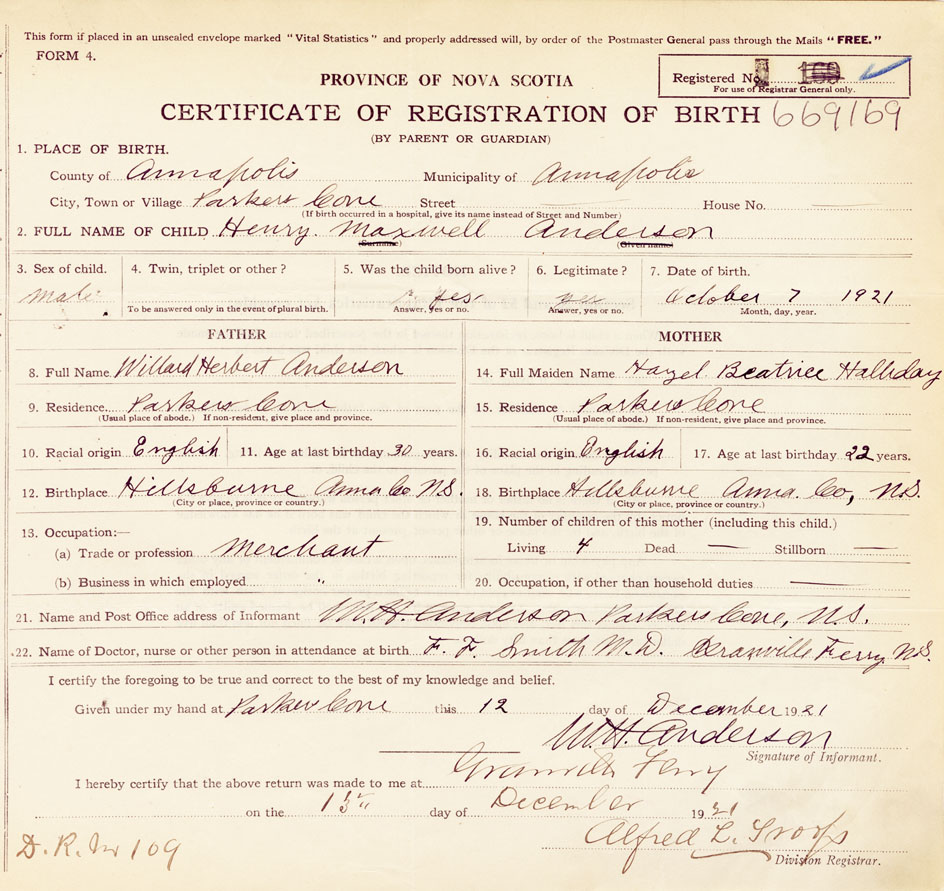 This form if placed in an unsealed envelope marked "Vital Statistics" and properly addressed will, by order of the Postmaster General pass through the Mails "FREE."
FORM 4.
PROVINCE OF NOVA SCOTIA
Registered No.
For use of Registrar General only.
CERTIFICATE OF REGISTRATION OF BIRTH 669169
(BY PARENT OR GUARDIAN)
1. PLACE OF BIRTH.
County of Annapolis Municipality of Annapolis
City, Town or Village Parkers Cove Street House No.
(If birth occurred in a hospital, give its name instead of Street and Number)
2. FULL NAME OF CHILD Henry Maxwell Anderson
(Surname) (Given name)
3. Sex of child. 4. Twin, triplet or other? 5. Was the child born alive? 6. Legitimate? 7. Date of birth.
Male yes yes October 7 1921
To be answered only in the event of plural birth. Answer, yes or no. Answer, yes or no. Month, day, year.
FATHER MOTHER
8. Full Name Willard Herbert Anderson 14. Full Maiden Name Hazel Beatrice Halliday
9. Residence Parkers Cove 15. Residence Parkers Cove
(Usual place of abode.) If non-resident, give place and province. (Usual place of abode.) If non-resident, give place and province.
10. Racial origin English 11. Age at last birthday 30 years. 16. Racial origin English 17. Age at last birthday 22 years.
12. Birthplace Hillsburne Anna Co N.S. 18. Birthplace Hillsburne Anna. Co, N.S.
(City or place, province or country.) (City or place, province or country.)
13. Occupation:— 19. Number of children of this mother (including this child.)
(a) Trade or profession Merchant Living 4 Dead — Stillborn —
(b) Business in which employed " 20. Occupation, if other than household duties —
21. Name and Post Office address of Informant W.H. Anderson Parkers Cove, N.S.
22. Name of Doctor, nurse or other person in attendance at birth F. F. Smith M.D. Granville Ferry N.S.
I certify the foregoing to be true and correct to the best of my knowledge and belief.
Given under my hand at Parker Cove this 12 day of December 1921
W.H. Anderson
Signature of Informant.
I hereby certify that the above return was made to me at Granville Ferry
on the day of December 1921
Alfred L.
Division Registrar.
D. R. No 109